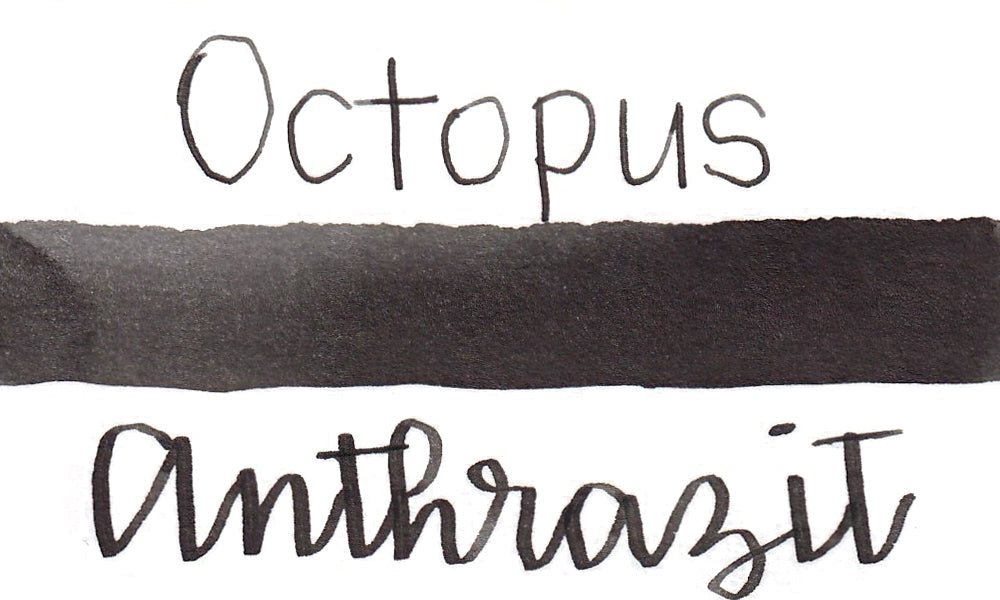 Octopus
Anthrazit